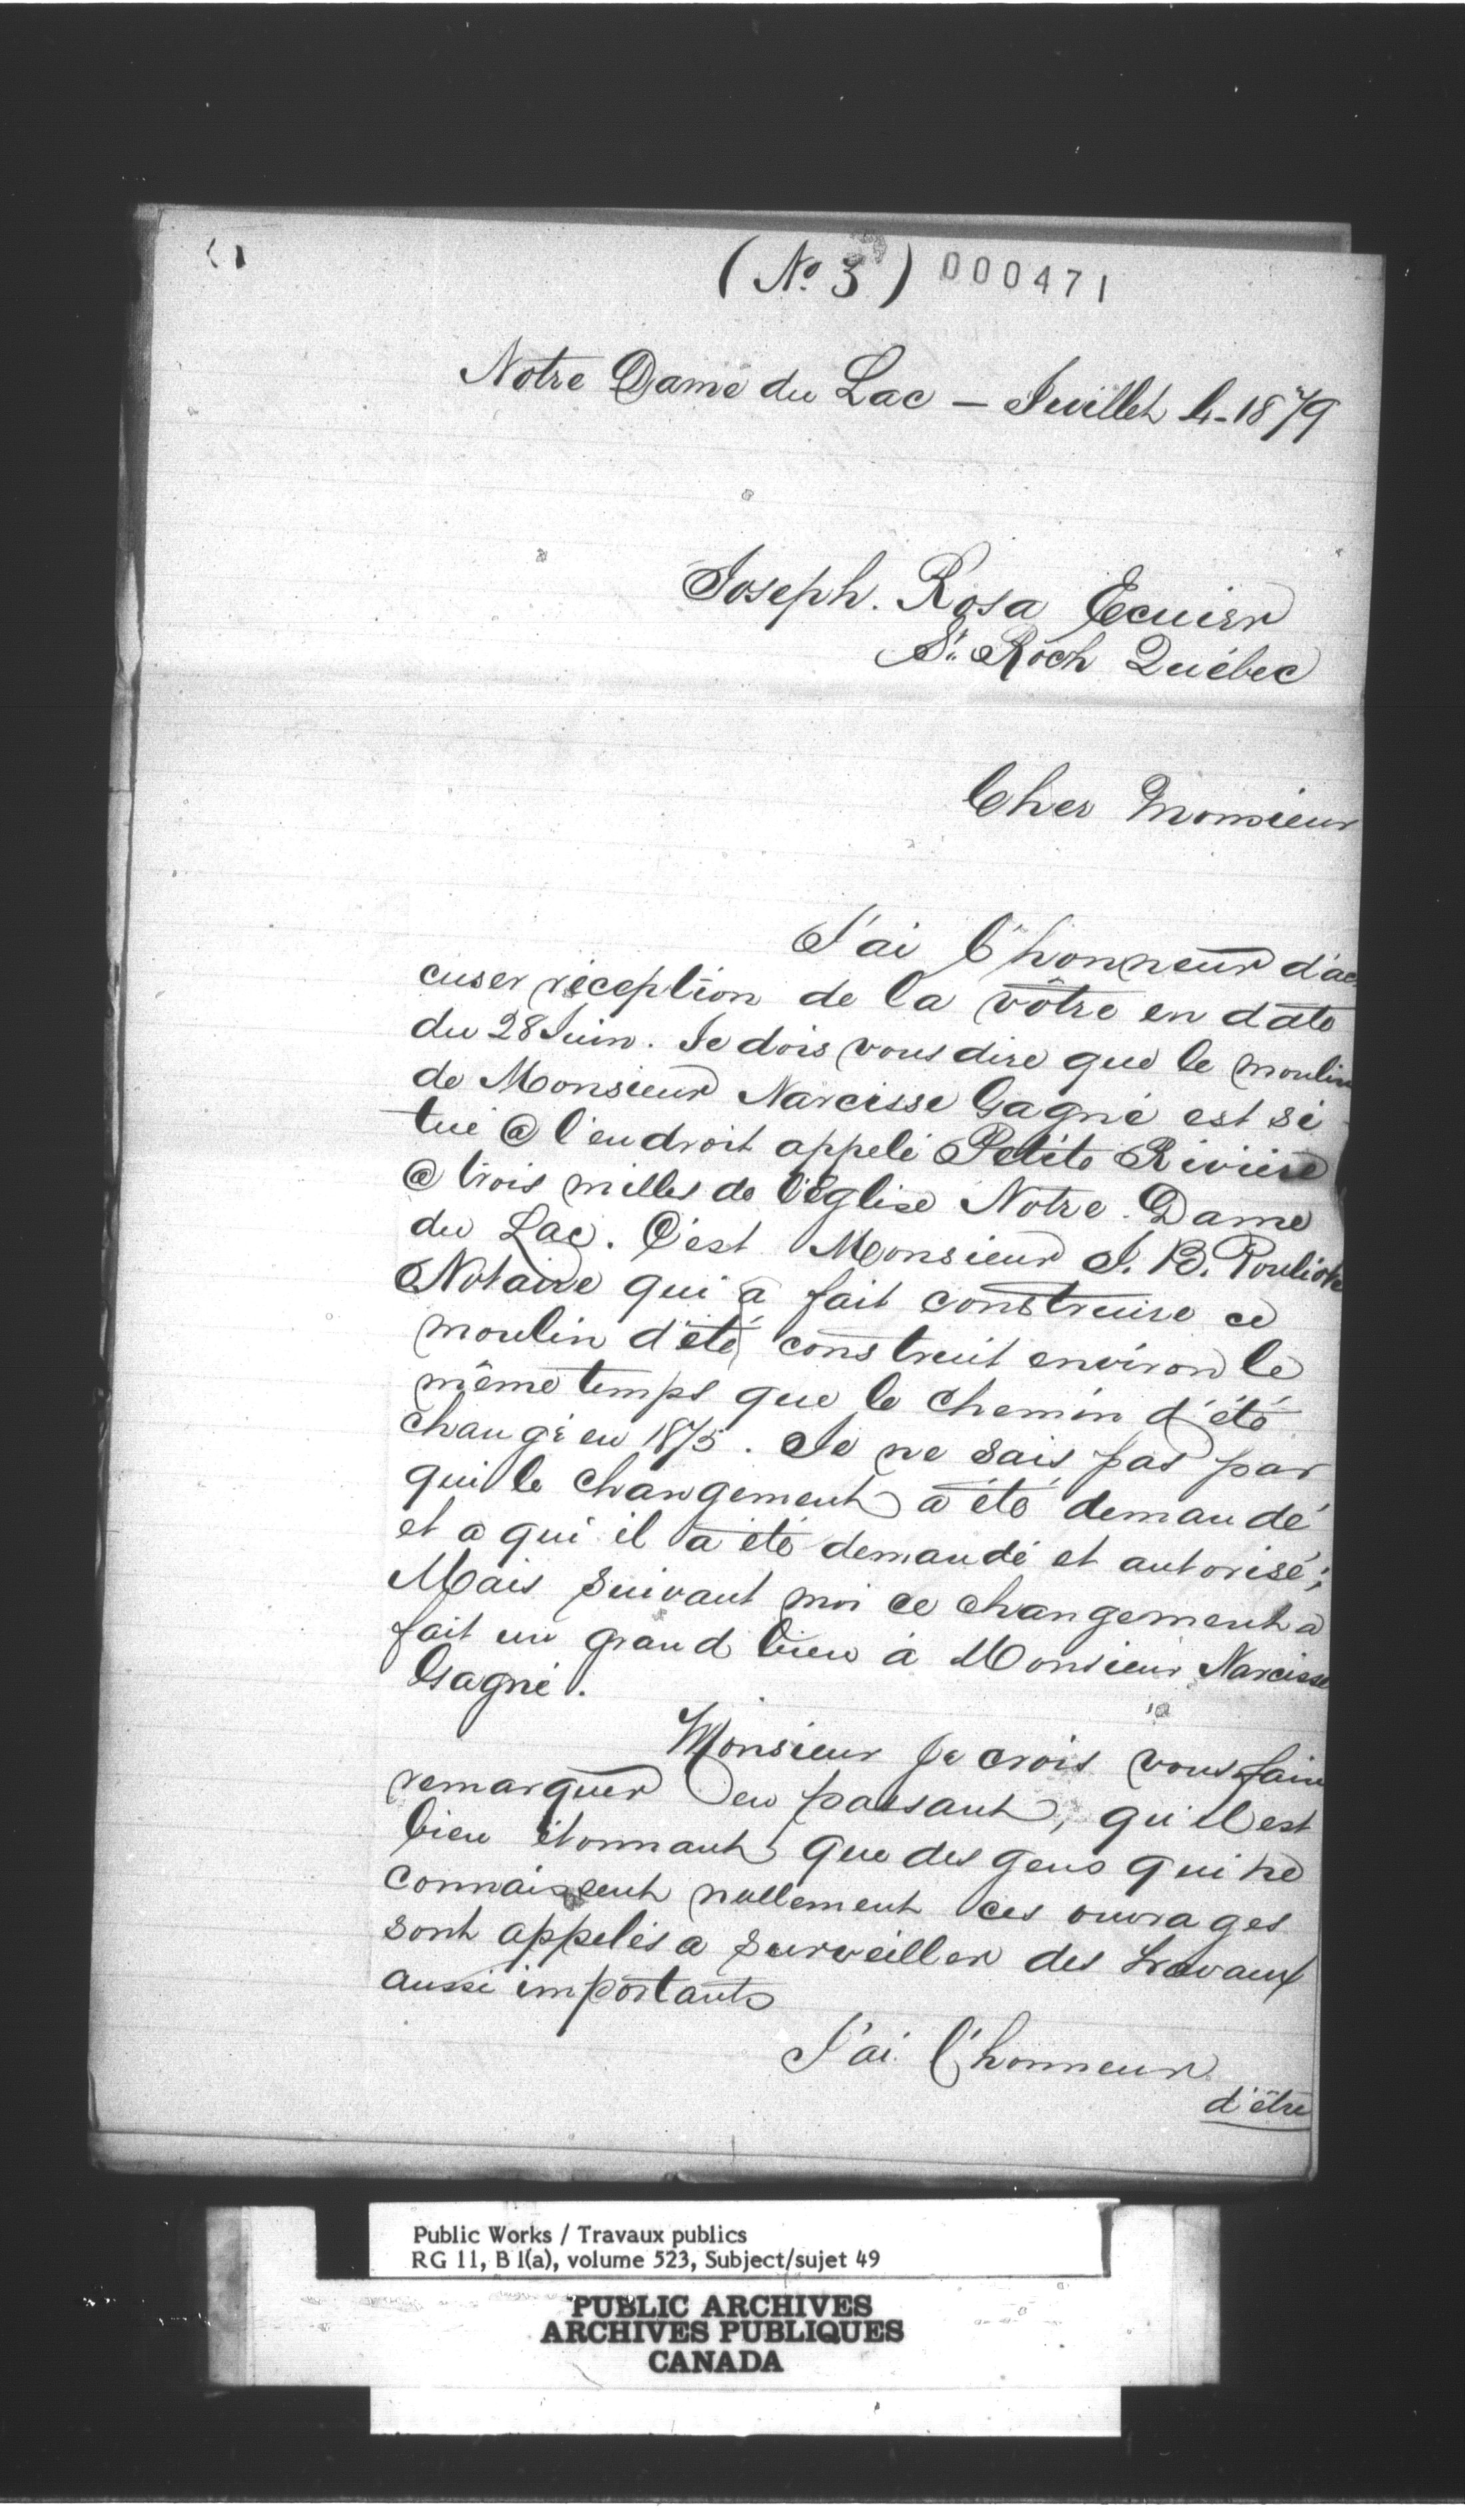 (No. 3) 000471
Notre Dame du Lac — Juillet 4-1879
Joseph. Rosa Ecuier
St. Roch Québec
Cher Monsieur
J'ai l'honneur d'ac
cuser réception de la vôtre en date
du 28 Juin. Je dois vous dire que le moulin
de Monsieur Narcisse Gagné est si
tué @ l'endroit appelé Petite Rivière
@ trois milles de l'église Notre. Dame
du Lac. C'est Monsieur J. B. Pouliot
Notaire qui a fait construire ce
moulin d'été construit environ le
même temps que le chemin d'été
changé en 1875. Je ne sais pas par
qui le changement a été demandé
et a qui il a été demandé et autorisé;
Mais suivant moi ce changement a
fait un grand bien à Monsieur Narcisse
Gagné.
Monsieur je crois vous faire
remarquer en passant, qu'il est
bien étonnant que des gens qui ne
connaissent nullement ces ouvrages
sont appelés a surveiller des travaux
aussi importants
J'ai l'honneur
d'être
Public Works / Travaux publics
RG 11, B 1(a), volume 523, Subject/sujet 49
PUBLIC ARCHIVES
ARCHIVES PUBLIQUES
CANADA